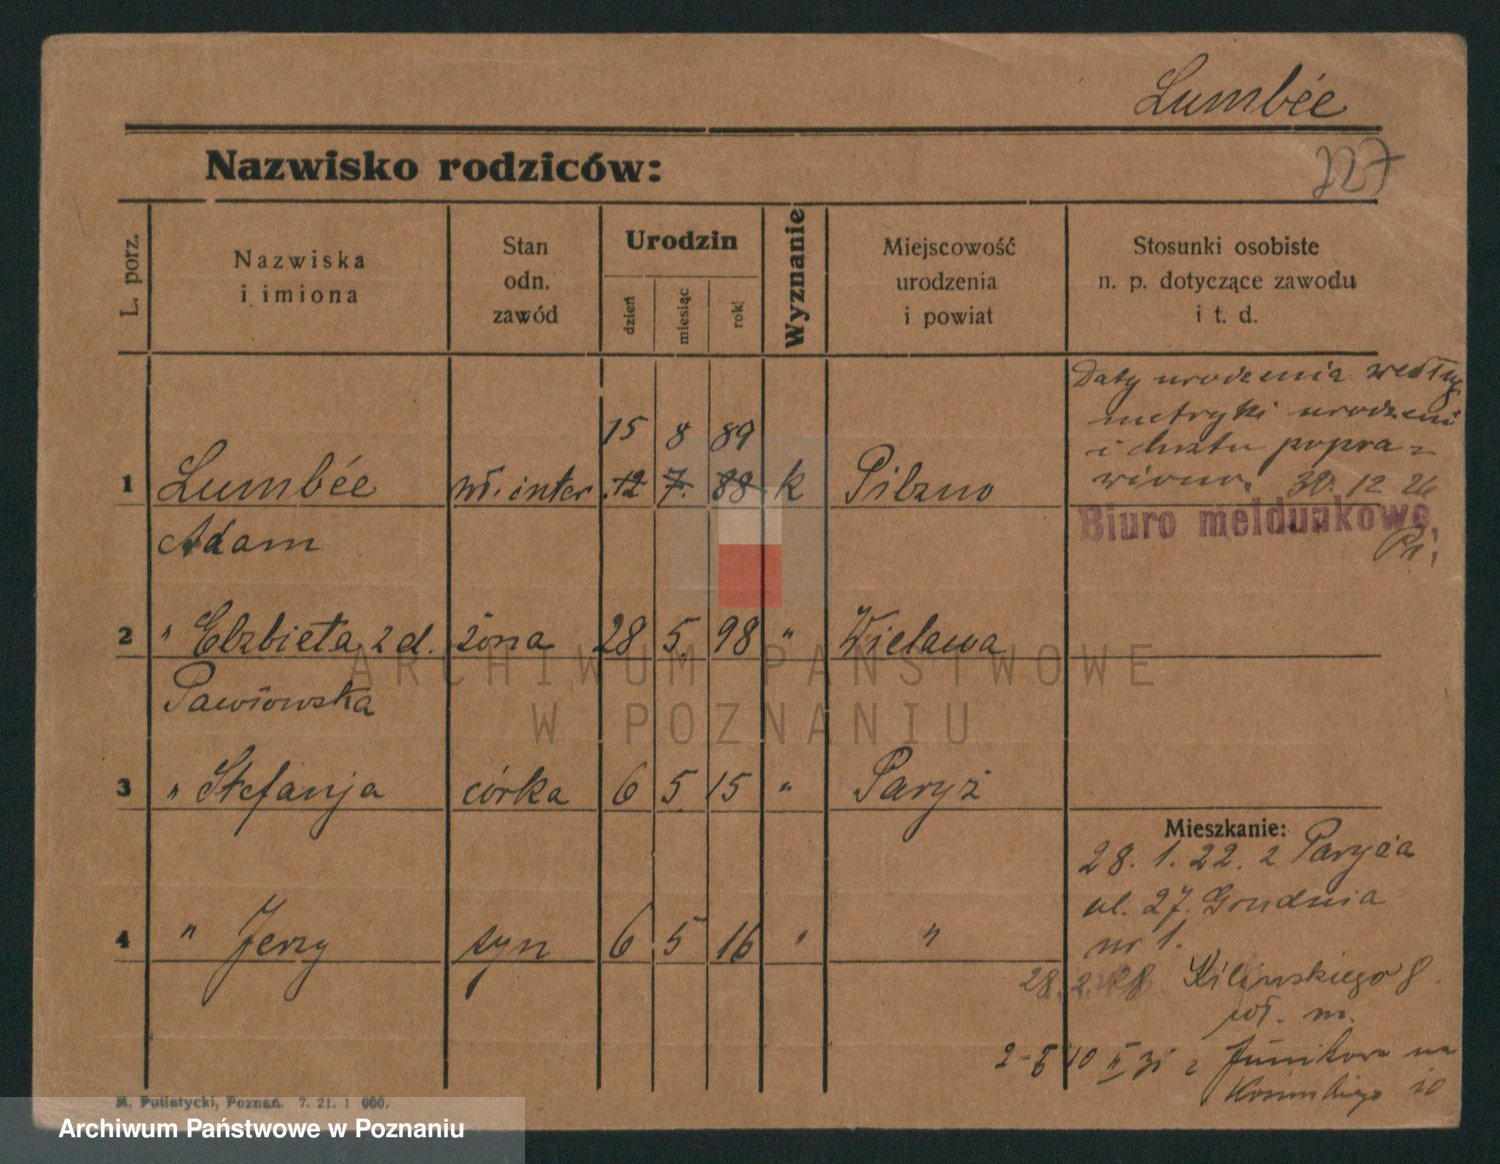 Lumbée
Nazwisko rodziców:
227
L. porz.
Nazwiska
i imiona
Stan
odn.
zawód
Urodzin
dzień
miesiąc
rok
Wyznanie
Miejscowość
urodzenia
i powiat
Stosunki osobiste
n. p. dotyczące zawodu
i t. d.
Daty urodzenia według
metryki urodzeni
i chrztu popra-
wiono. 30. 12 26
Biuro meldunkowe
15 8 89
1 Lumbée wł. inter. 12 7. 88 k Pilzno
Adam
2 " Elżbieta z d. żona 28 5. 98 " Wielawa
Pawłowska
3 " Stefanja córka 6 5. 15 " Paryż
4 " Jerzy syn 6 5 16 " "
Mieszkanie:
28. 1. 22. z Paryża
ul. 27. Grudnia
nr 1.
28. 2. 28 Kilińskiego 8
wł. m.
z Junikowa na
10
M. Putiatycki, Poznań. 7. 21. 1 000.
ARCHIWUM PAŃSTWOWE
W POZNANIU
Archiwum Państwowe w Poznaniu